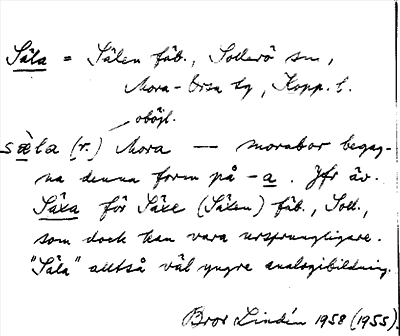 Säla = Sälen fäb., Sollerö sn,
Mora-Orsa tg, Kopp. l.
oböjl.
sæ̀la (r.) Mora — morabor begag-
na denna form på -a. Jfr äv.
Säxa för Säxe (Säxen) fäb., Soll.,
som dock kan vara ursprungligare.
"Säla" alltså väl yngre analogibildning.
Bror Lindén 1958 (1955).